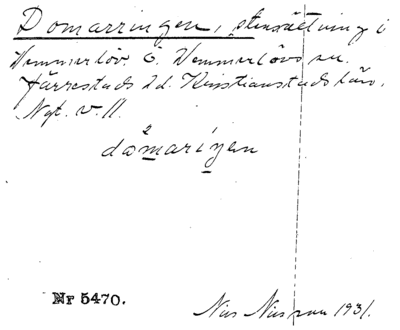 Domarringen, stensättning i
Vemmerlöv Ö. Vemmerlövs sn.
Järrestads hd. Kristianstads län.
Nyt. v. ll.
dåmariŋen
Nr 5470.
Nils Nilsson 1931.